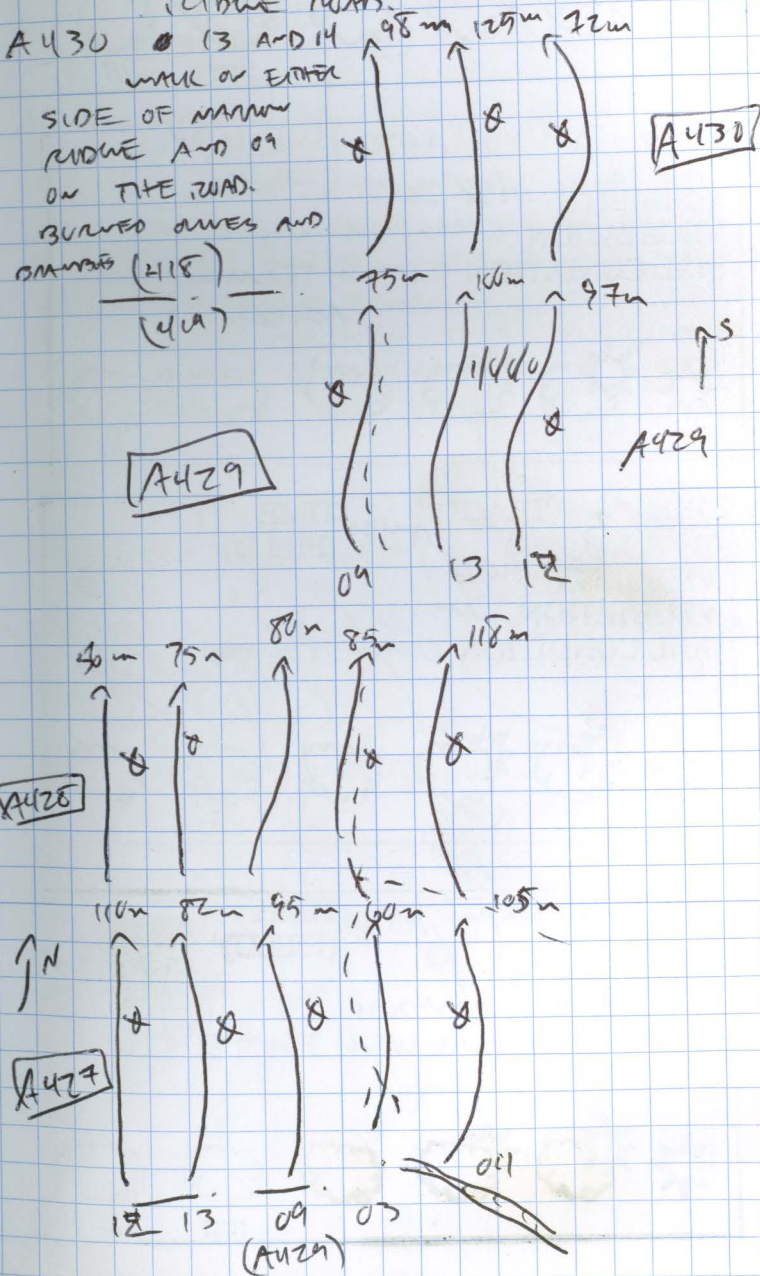 RIDGE ROAD.
A430 13 AND 14
WALK ON EITHER
SIDE OF NARROW
RIDGE AND 09
ON THE ROAD.
BURNED OLIVES AND
BRAMBLES (418)
(419)
98m 125m 72m
A430
75m 100m 97m
S
A429
A429
09 13 12
75m 80m 85m 118m
A428
110m 82m 95m 60m 105m
N
A427
04
12 13 09 03
(A429)